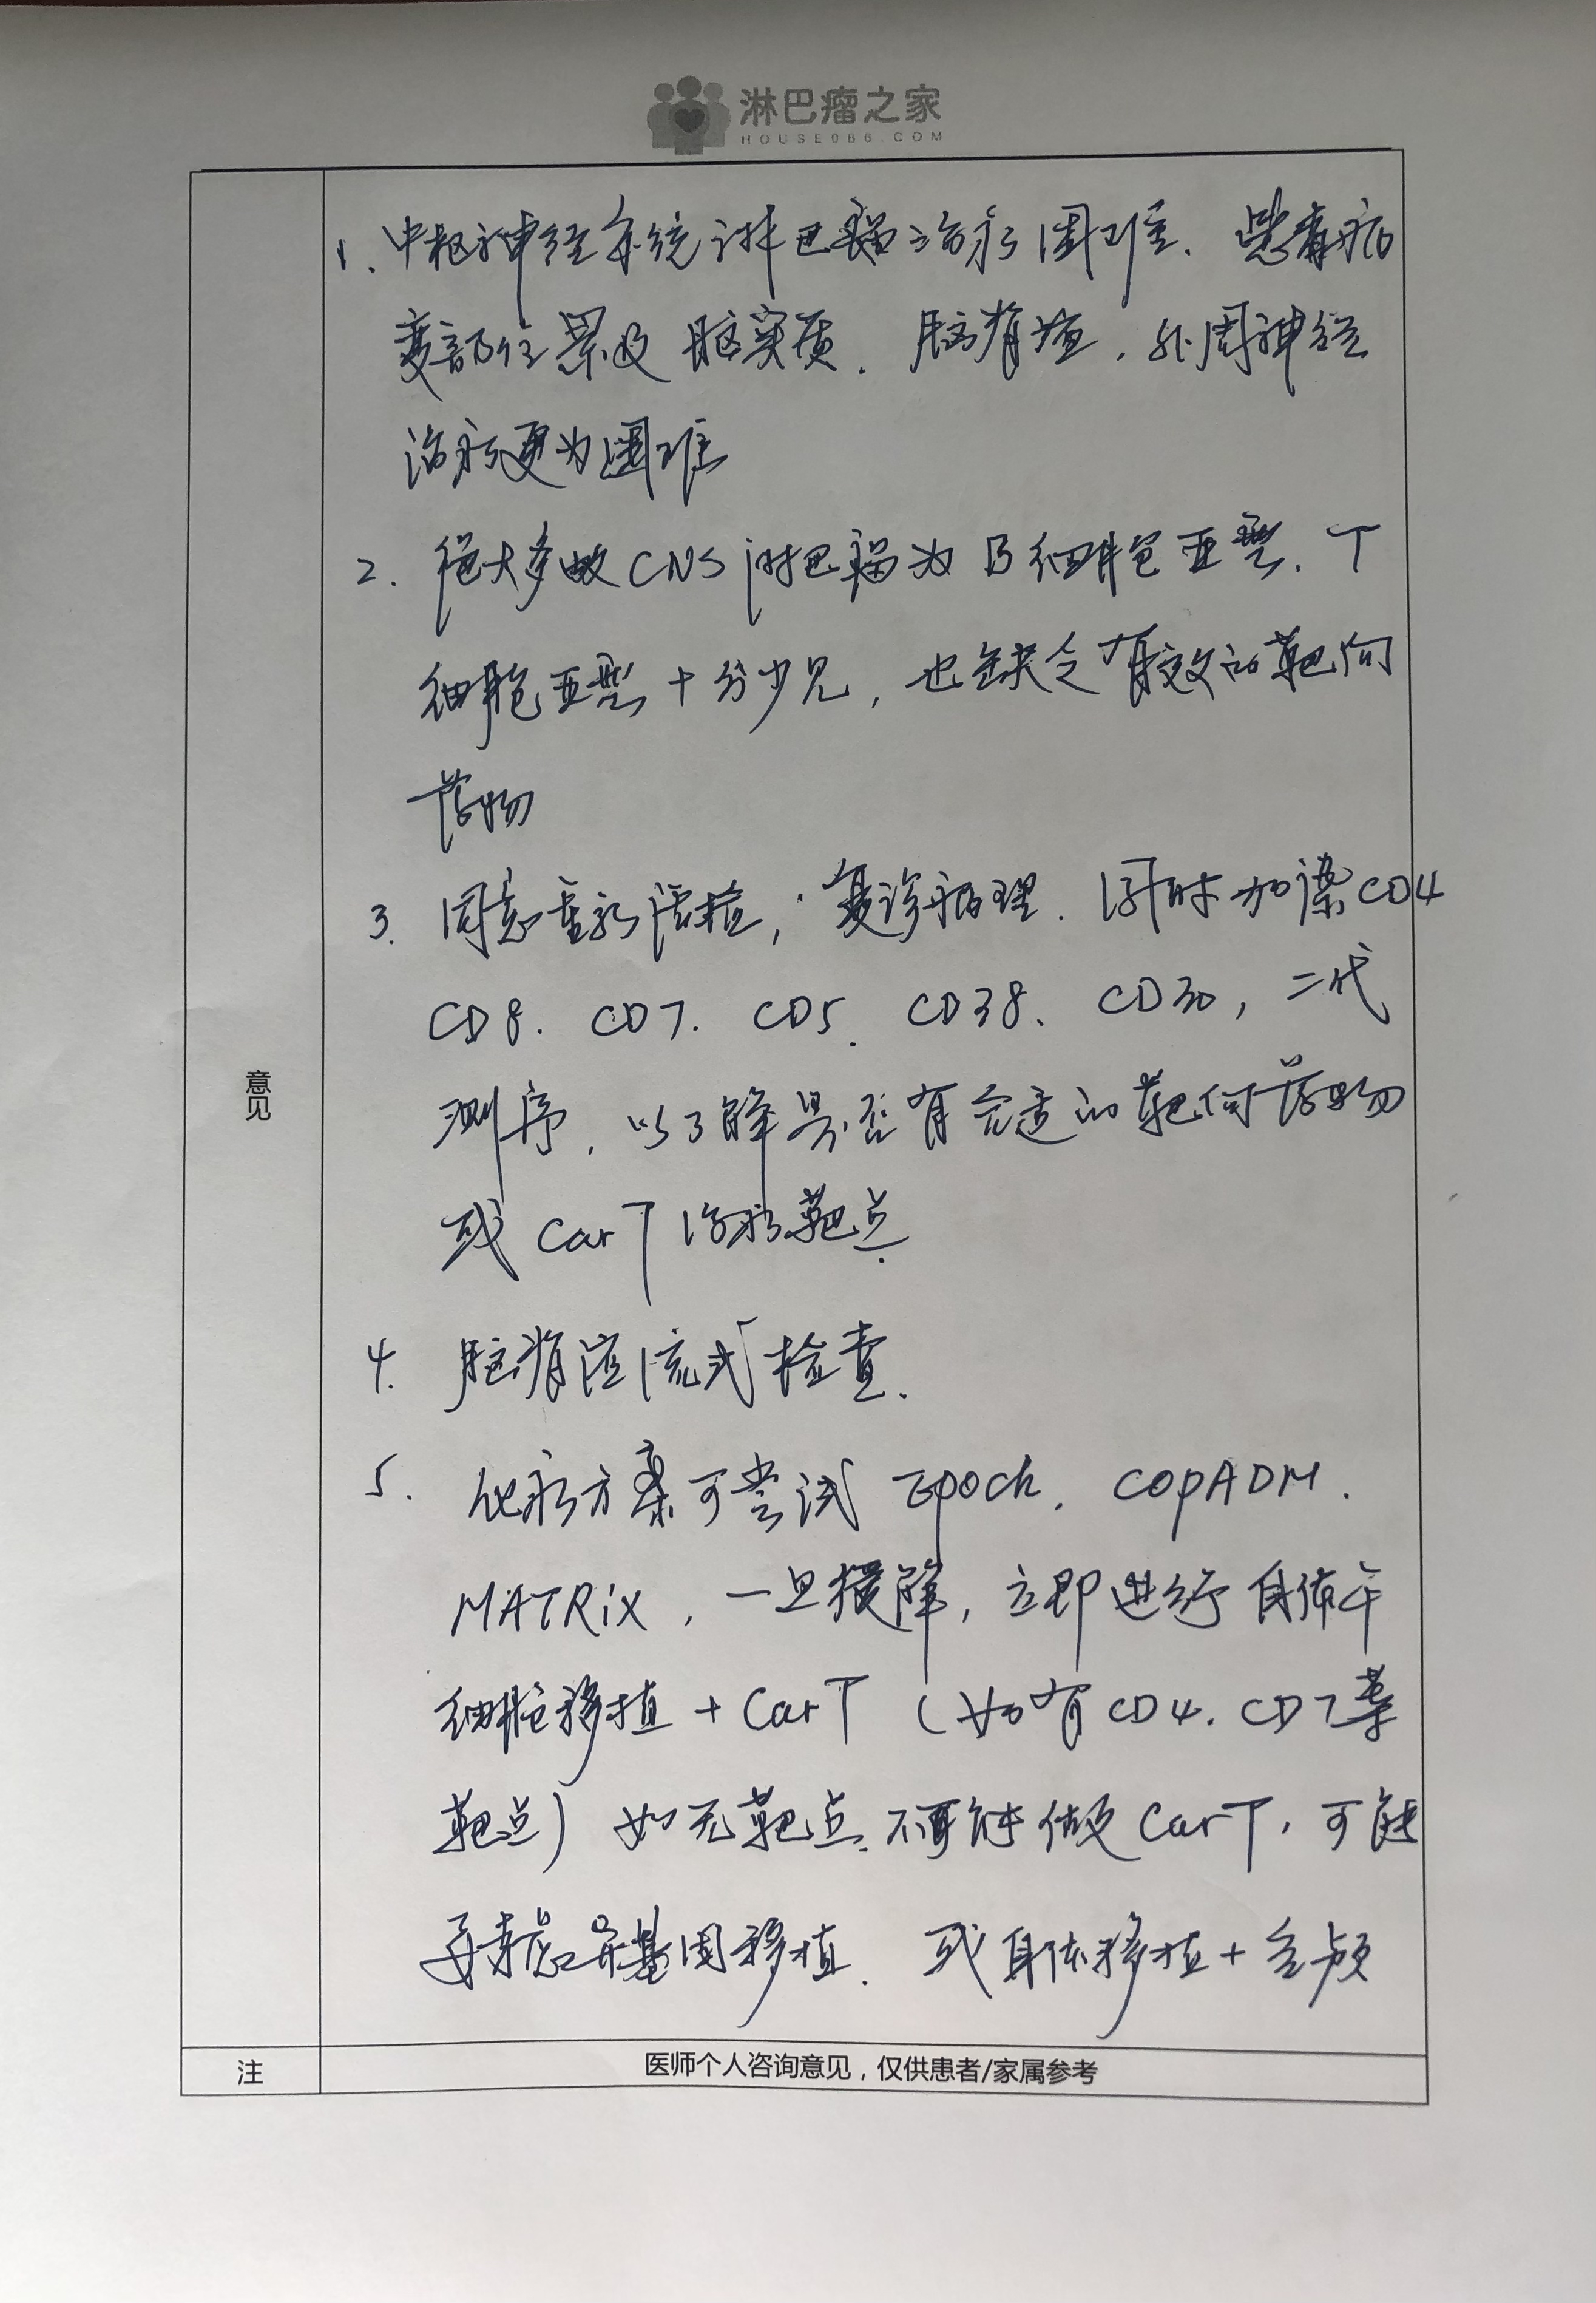 淋巴瘤之家
HOUSE086.COM
1. 中枢神经系统淋巴瘤治疗困难. 患者病
变部位累及脑实质. 脑脊液, 外周神经
治疗更为困难
2. 绝大多数CNS淋巴瘤为B细胞亚型. T
细胞亚型十分少见, 也缺乏有效的靶向
药物
3. 同意重新活检, 复诊病理. 同时加染CD4
CD8. CD7. CD5. CD38. CD30, 二代
测序, 以了解是否有合适的靶向药物
或CarT治疗靶点
4. 脑脊液流式检查.
意见
5. 化疗方案可尝试 Epoch. COPADM.
MATRix, 一旦缓解, 立即进行自体干
细胞移植+CarT (如有CD4. CD7等
靶点) 如无靶点, 不能做CarT, 可能
要考虑异基因移植. 或自体移植+全颅
注
医师个人咨询意见，仅供患者/家属参考